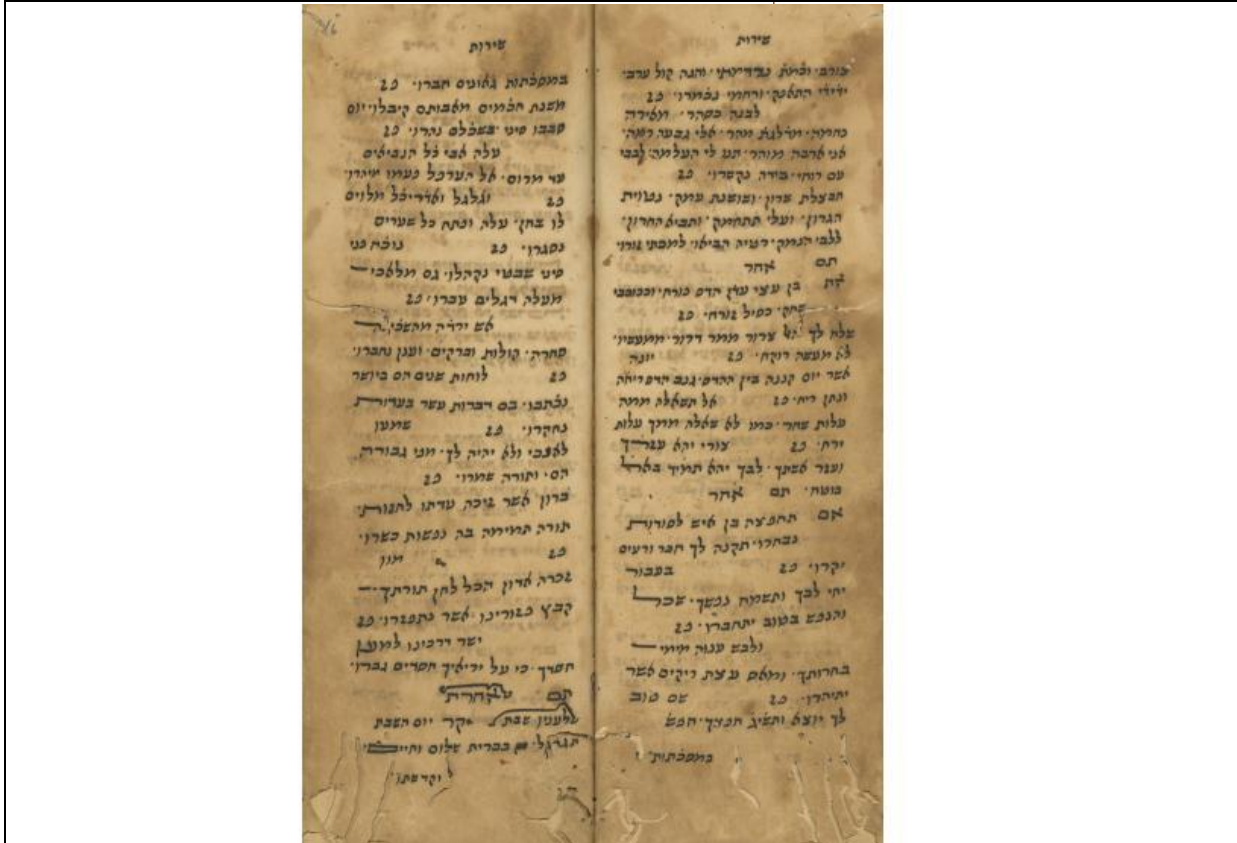 שירות
עורבי וכתת נדידתי והנה קול ערבי
ידידי התאפק ורחמי נכמרו פז
לבנה כסהר מאירה
כחמה מדלגת מהר אלי גבעה רמה
אני ארבה מוהר תנו לי העלמה לבבי
עם רוחי בידה נקשרו פז
חבצלת שרון ושושנת עמק נטוית
הגרון ועלי תתחמק ותביא החרון
ללבי הנמק רטיה הביאו למכתי צורי
תם אחר
את בן עצי עדן הדס פורח ובכוכבי
שחק כסיל זורח פז
שלח לך אל צרור ממר דרור ממעשיו
לא מעשה רוקח פז יונה
אשר יום קננה בין ההדס גנב הדס ריחה
ונתן ריח פז אל תשאלה ממה
עלות שחר כמו לא שאלה ממך עלות
ירח פז צורי יהא עזרך
ועזר אשתך לבך יהא תמיד באל
בוטח תם אחר
אם תחפצה בן איש לסודות
נבחרו תקנה לך חבר ורעים
יקרו פז בעבור
יחי לבך ותשמח נפשך שכל
והנפש בטוב יתחברו פז
ולבש ענוה מימי
בחרותך ומאס עצת ריקים אשר
יתיהרו פז שם טוב
לך יוצא ותשיג חפצך חפש
במסכתות
שירות
במסכתות גאונים חברו פז
משנת חכמים מאבותם קיבלו יום
סבבו סיני בשכלם נהרו פז
עלה אבי כל הנביאים
עד מרום אל הערפל פעמו מיהרו
פז וגלגל ואדריכל מלוים
לו בחן עלה ופתח כל שערים
נסגרו פז נוכח פני
סיני שבטי נקהלו גם מלאכי
מעלה דגלים עברו פז
אש ירדה מהשכינה
סחרה קולות וברקים וענן נחברו
פז לוחות שנים הם ביושר
נכתבו בם דברות עשר בעדות
נחקרו פז שמעו
לאנכי ולא יהיה לך מפי גבורה
הם ותורה שמרו פז
ברון אשר זיכה עדתו לחנות
תורה תמימה בה נפשות כשרו
פז מון
זכרה אדון הכל לחן תורתך
קבץ פזורינו אשר נתפזרו פז
ישר דרכינו למען
חסדך כי על יריאיך חסדים גברו
תם אחרת
לענין שבת יקר יום השבת
תגדל בברית שלום וחיי
וקדשתו